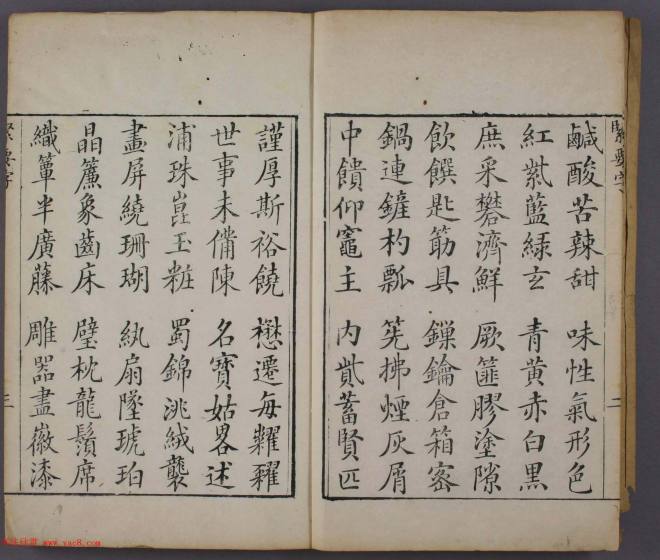 鹹酸苦辣甜 味性氣形色
紅紫藍綠玄 青黃赤白黑
庶采礬濟鮮 厥篚膠塗隙
飲饌匙筯具 鏁鑰倉箱密
鍋連鏟杓瓢 筅拂煙灰屑
中饋仰竈主 內貳蓄賢匹
二
謹厚斯裕饒 懋遷每糶糴
世事未備陳 名寶姑畧述
浦珠崑玉粧 蜀錦洮絨襲
畫屏繞珊瑚 紈扇墜琥珀
晶簾象齒床 璧枕龍鬚席
織簟半廣藤 雕器盡徽漆
三
www.yac8.com